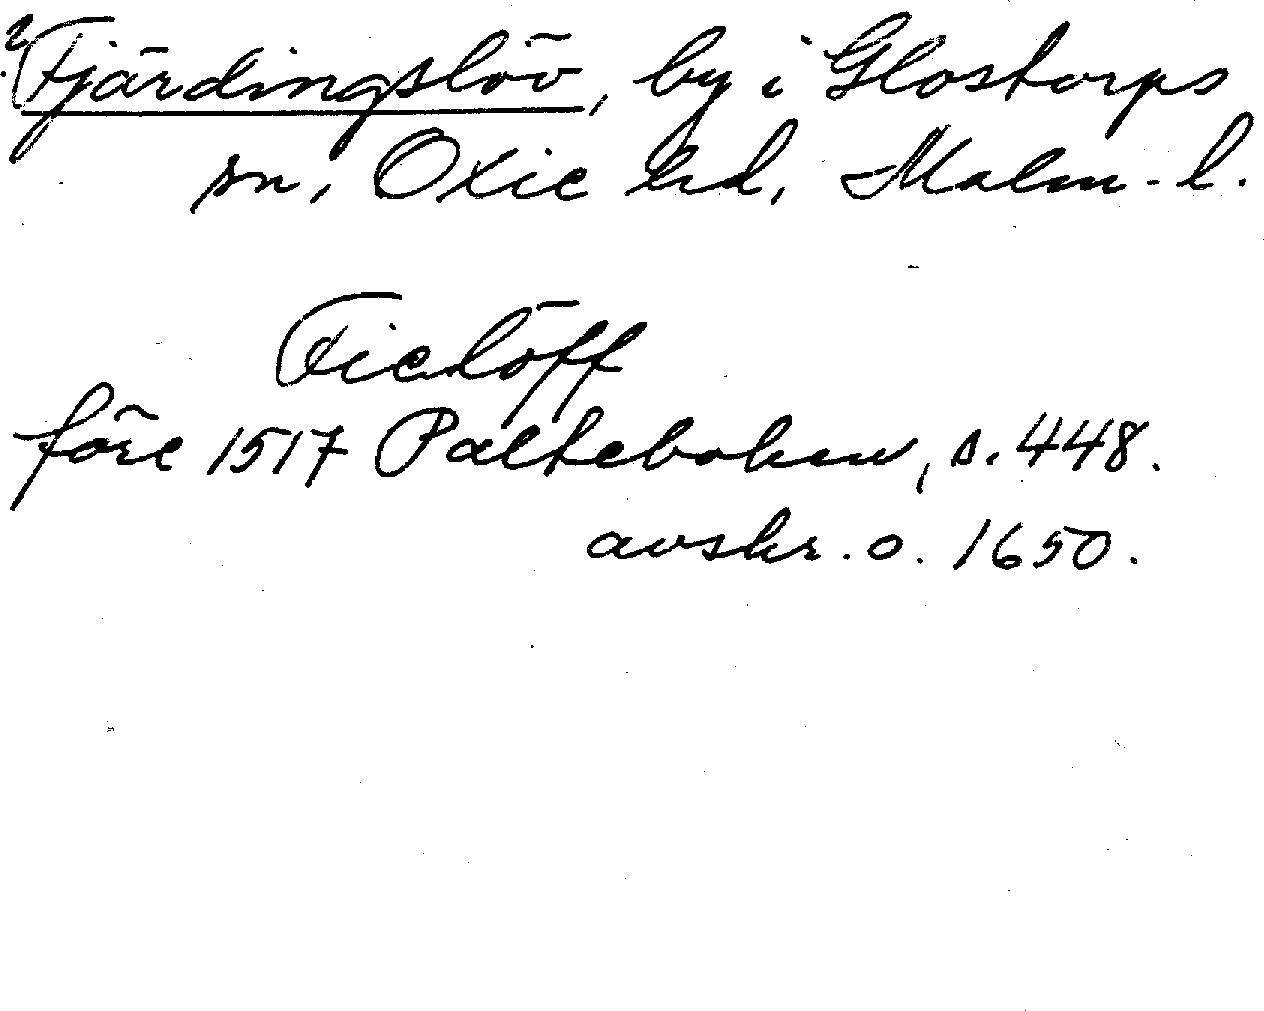 ? Fjärdingslöv, by i Glostorps
sn, Oxie hd, Malm-l.
Fielöff
före 1517 Paltebohen, s. 448.
avskr. o. 1650.